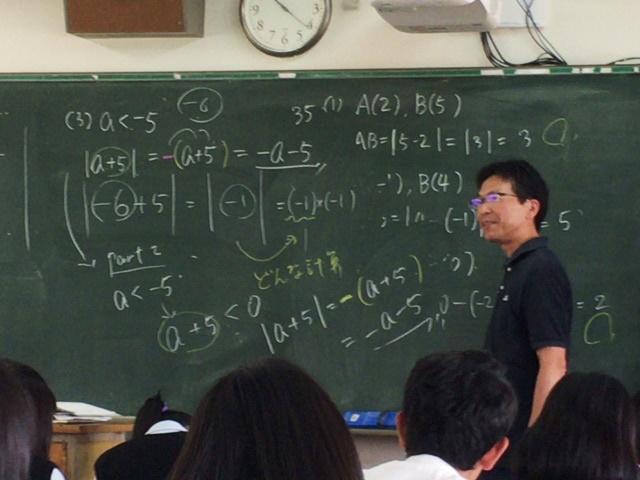 (3) a < -5 -6
|a+5| = -(a+5) = -a-5
|-6+5| = |-1| = (-1)×(-1)
どんな計算
part 2
a < -5
a+5 < 0
|a+5| = -(a+5)
= -a-5
35 (1) A(2), B(5)
AB=|5-2|=|3|=3
-1), B(4)
= 5
0-(-2
= 2